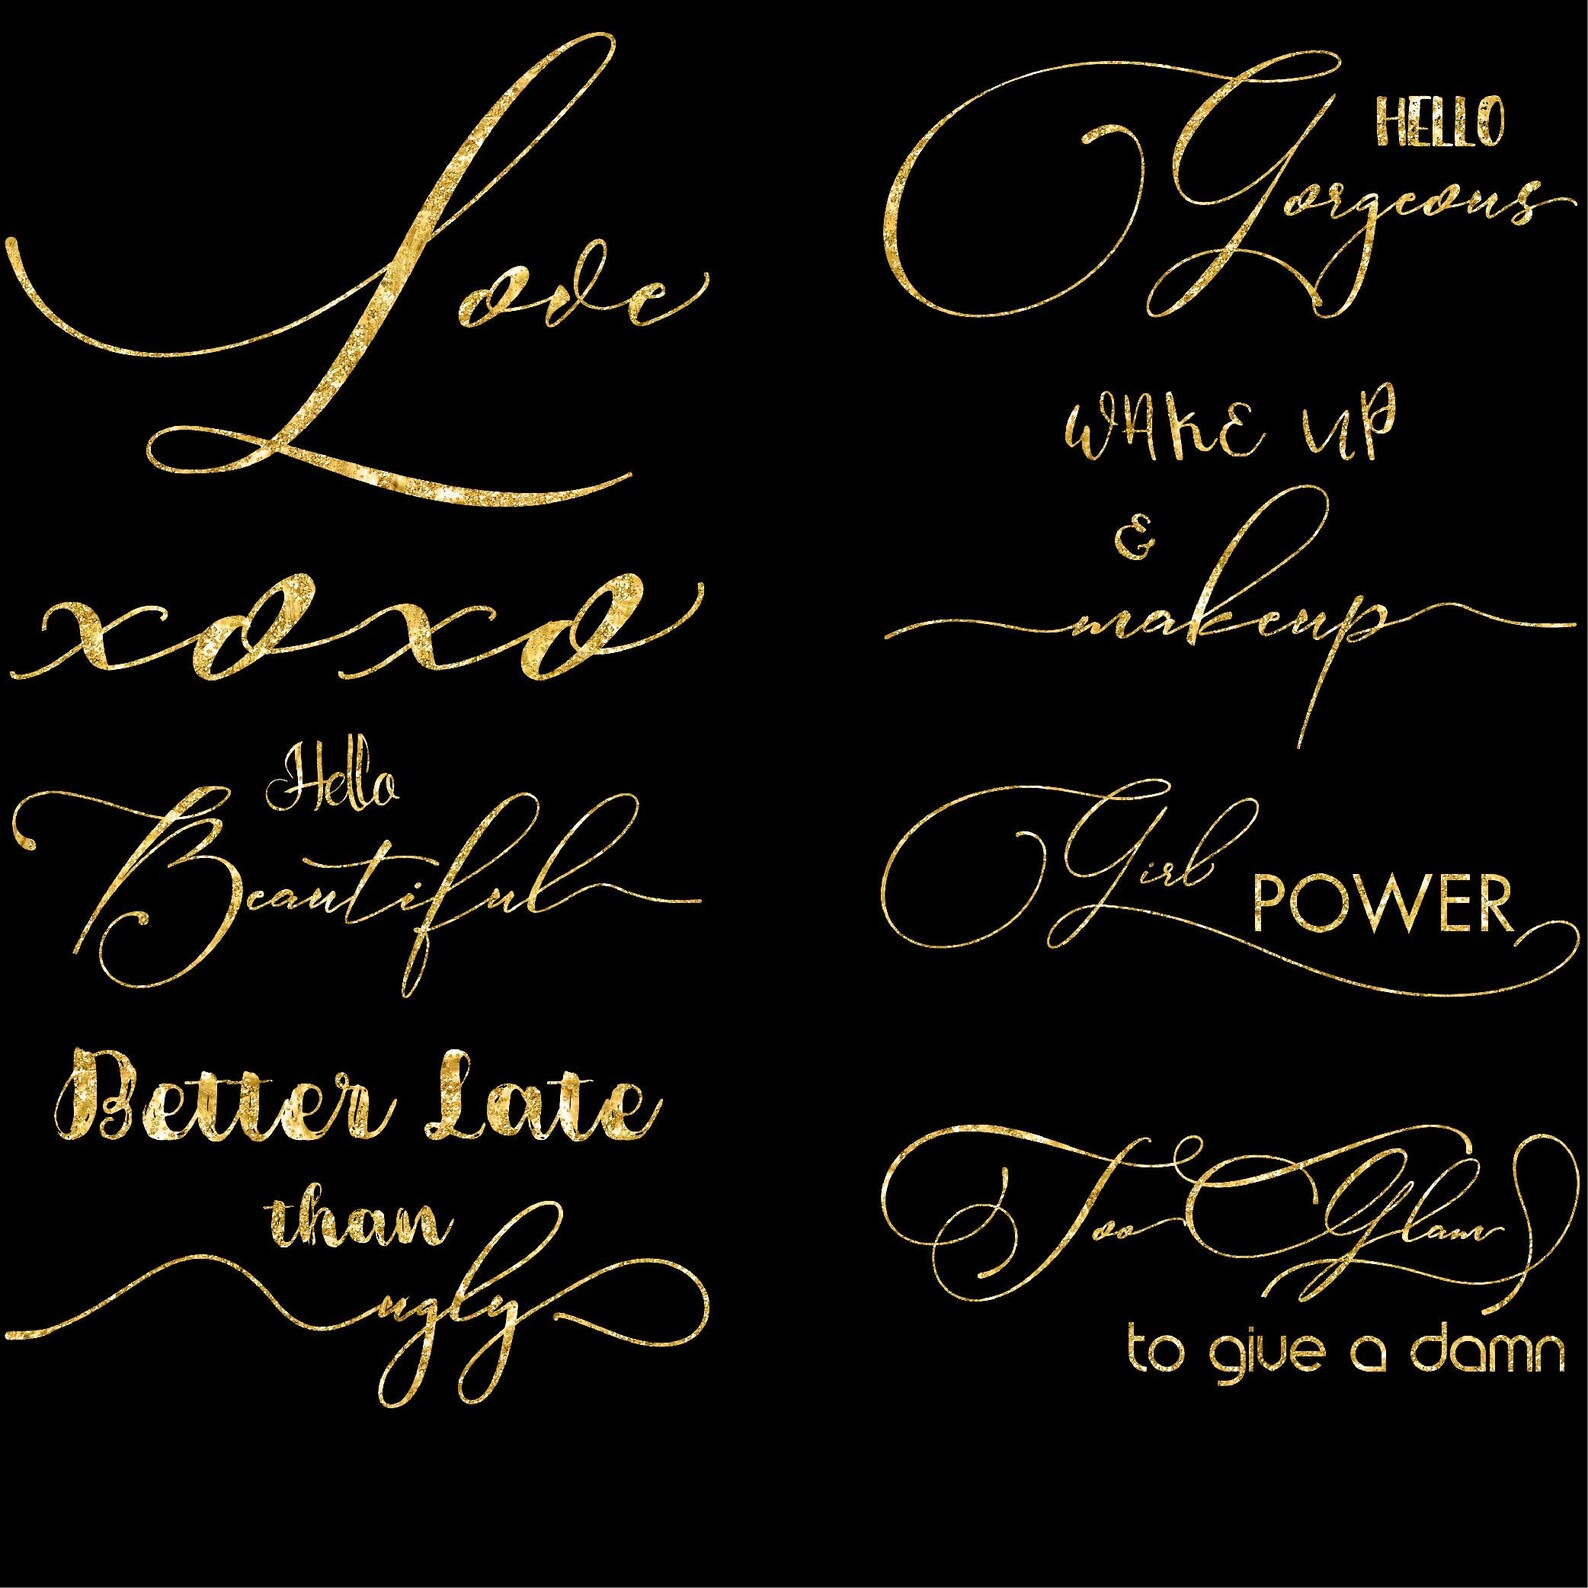 Love
xoxo
Hello
Beautiful
Better Late
than
ugly
HELLO
Gorgeous
WAKE UP
&
makeup
Girl POWER
Too Glam
to give a damn